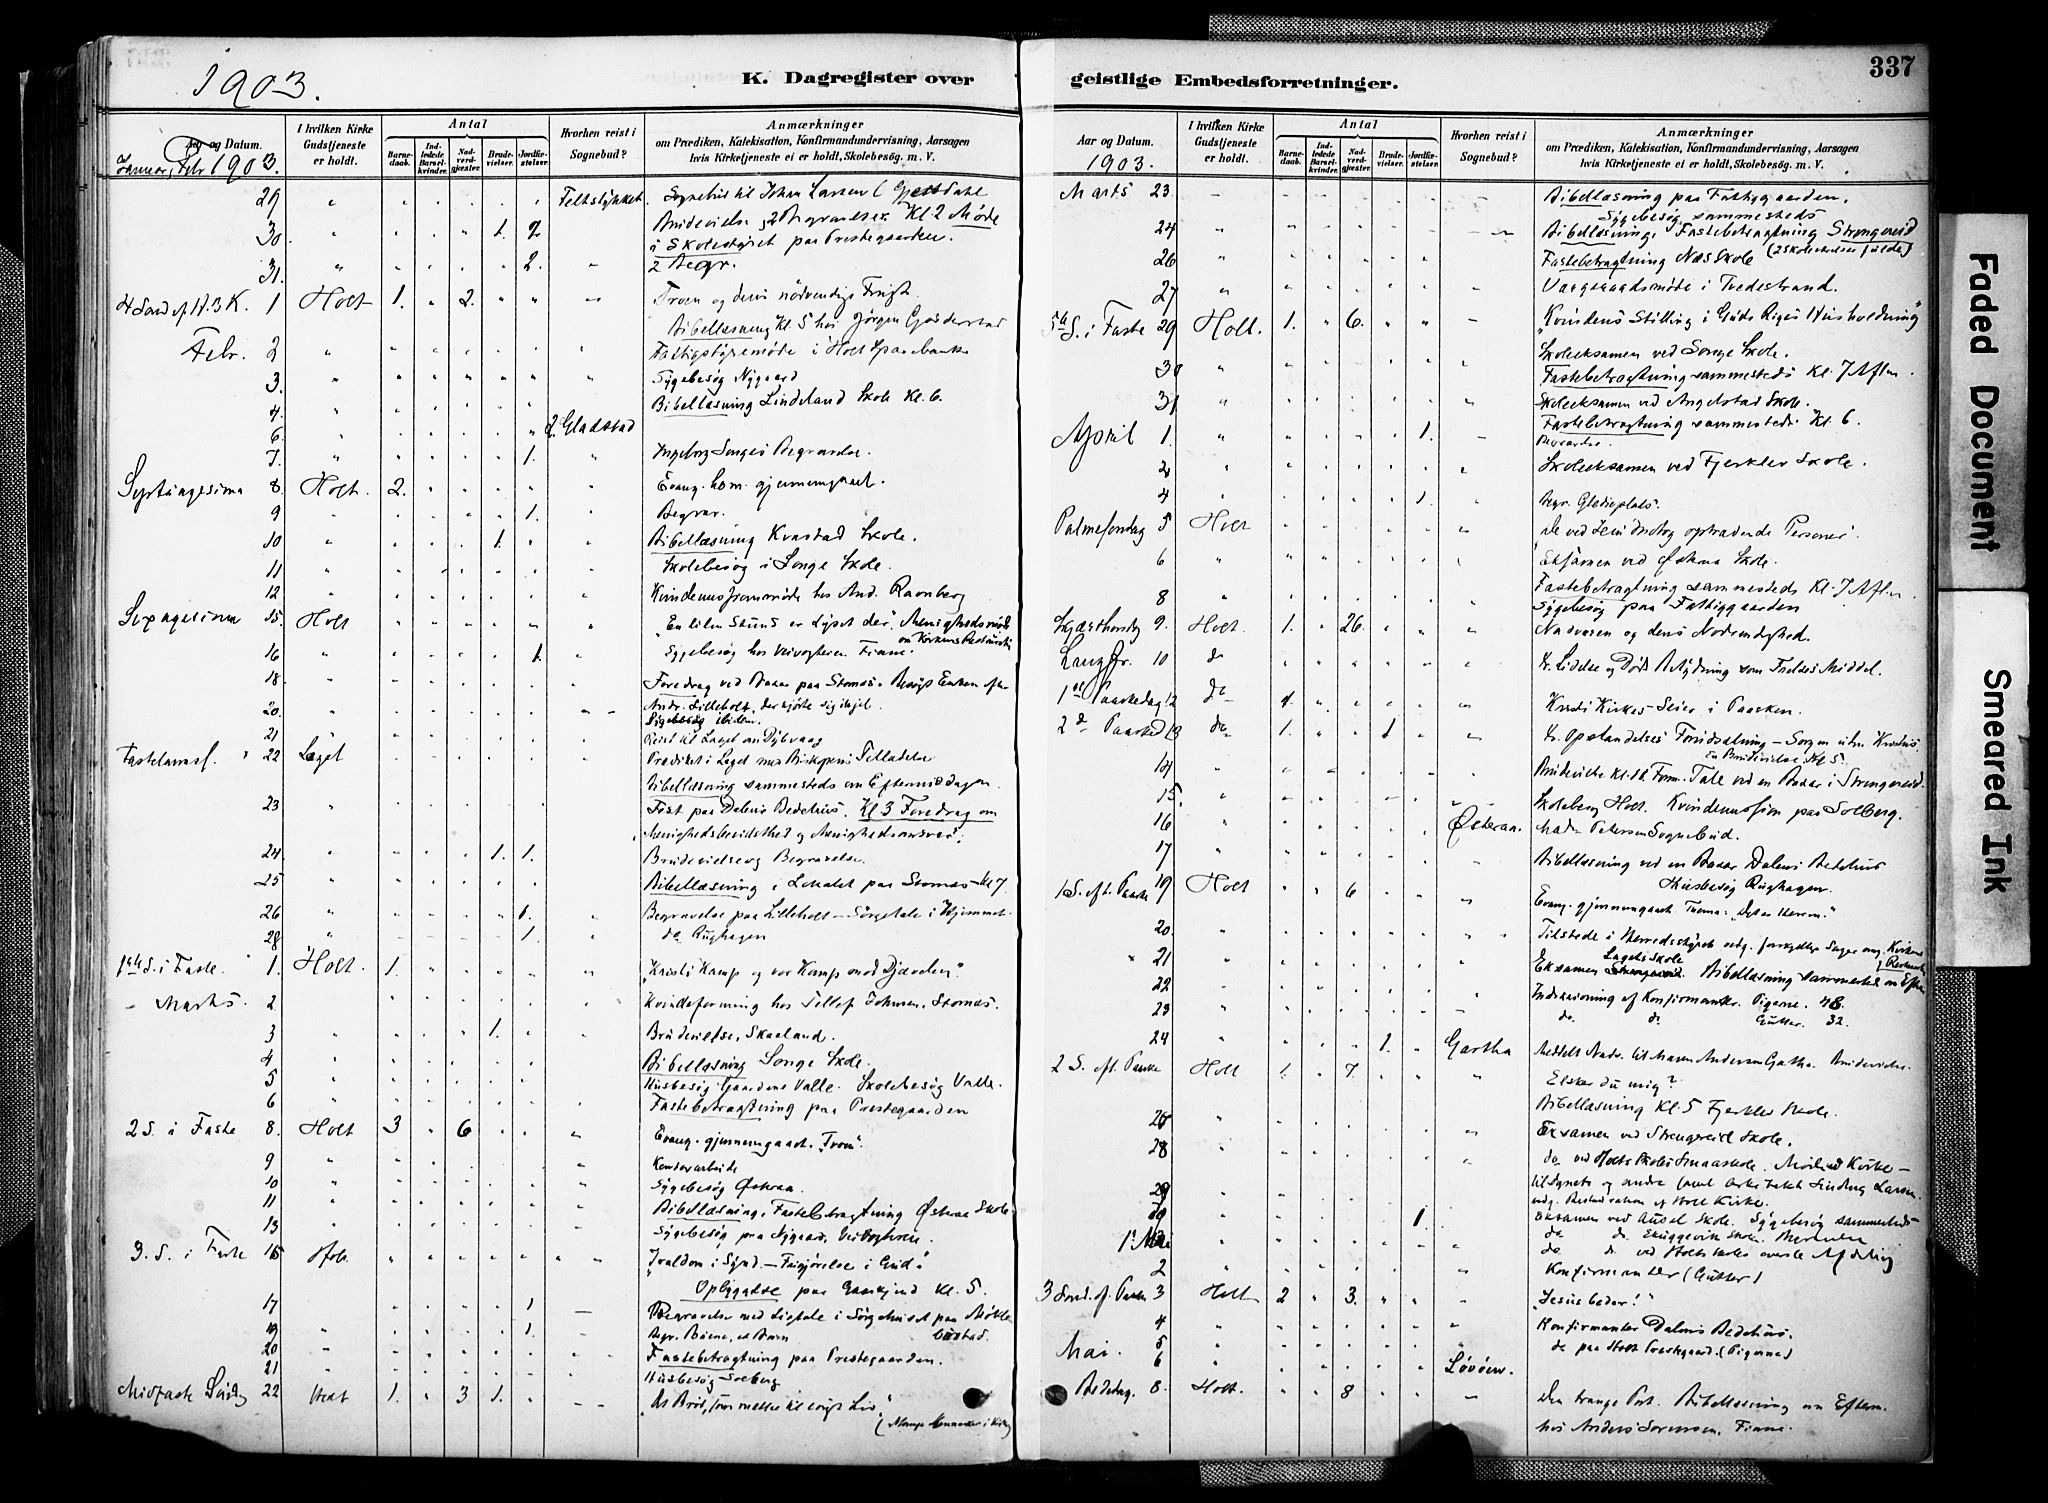 1903.
K. Dagregister over
Aar og Datum.
Januar, Febr 1903.
I hvilken Kirke Gudstjeneste er holdt.
Antal
Barnedaab.
Indledede Barselkvinder.
Nadverdgjester.
Brudevielser.
Jordfæstelser.
Hvorhen reist i Sognebud?
Anmærkninger
om Prædiken, Katekisation, Konfirmandundervisning, Aarsagen
hvis Kirketjeneste ei er holdt, Skolebesøg. m. V.
29 Feltstykket. Sognebud til Johan Larsen
30. 1. 2. Brudevielse, 2 Begravelser Kl. 2 Møde
i Skolestyret paa Prestegaarden.
31. 2. 2 Begr.
4 Sønd. ef. H. 3 K. 1 Holt 1. 2. Troen og dens nödvendige Frugt.
Bibellæsning Kl. 5 hos Jörgen
Febr. 2 Fattigstyremøde i Holt Sparebank
3. Sygebesøg Nygaard
4. Bibellæsning Lindeland Skole Kl. 6.
6. Gladstad
7. 1. Ingeborg Songes Begravelse.
Septuagesima 8. Holt. 2. Evang. hom. gjennemgaaet.
9 1. Begrav.
10 1. Bibellæsning Kvastad Skole.
11 Skolebesøg i Songe Skole.
12 Kvindemissionsmöde hos And. Ramberg
Sexagesima 15. Holt "En liten Stund er Lyset der". Menighedsmöde
om Kirkens Restaurering
16 1. Sygebesøg hos Veivogteren Fiane.
18. Foredrag ved Basar paa Stomås.
20. Andr. Lilleholt,
Sygebesøg ibidem.
21 Reist til Laget om Dybvaag
Fastelavnss. 22 Laget Prædiket i Laget med Biskopens Tilladelse
Bibellæsning sammesteds om Eftermiddagen.
23 Fest paa Dalens Bedehus. Kl 3 Foredrag om
Menighedsbevidsthed og Menighedsansvar.
24 1. 1. Brudevielse og Begravelse.
25 Bibellæsning i Lokalet paa Stomås Kl 7
26 1. Begravelse paa Lilleholt – Sørgetale i Hjemmet.
28 1. do Rughagen
1ste S. i Faste 1. Holt. 1. "Kristi Kamp og vor Kamp mod Djævelen".
Marts. 2 Kvindeforening hos Tellef Johnsen, Stomås.
3 1. Brudevielse, Skaaland.
4 Bibellæsning Songe Skole.
5 Husbesøg Gaardene Valle. Skolebesøg Valle.
6 Fastebetragtning paa Prestegaarden
2 S. i Faste 8. Holt 3 6 Evang. gjennemgaaet. "Troen".
9 Kontorarbeide
10 Sygebesøg Østeraa.
11 Bibellæsning, Fastebetragtning Østeraa Skole.
13 Sygebesøg paa Nygaard, Veivogteren.
3. S. i Faste 15 Holt "Trældom i Synd – Frigjørelse i Gud"
Opbyggelse paa Kl. 5.
17 1 Begravelse med Ligtale i Sørgehuset paa
19 1. Begr. et Barn
20 Fastebetragtning paa Prestegaarden.
21 Husbesøg Solberg
Midfaste Søndag 22 Holt 1. 3 1. "Et Brød, som mætter til evigt Liv"
(Mange Mennesker i Kirke)
geistlige Embedsforretninger.
337
Aar og Datum.
1903.
I hvilken Kirke Gudstjeneste er holdt.
Antal
Barnedaab.
Indledede Barselkvinder.
Nadverdgjester.
Brudevielser.
Jordfæstelser.
Hvorhen reist i Sognebud?
Anmærkninger
om Prædiken, Katekisation, Konfirmandundervisning, Aarsagen
hvis Kirketjeneste ei er holdt, Skolebesøg. m. V.
Marts 23 Bibellæsning paa Fattiggaarden.
Sygebesøg sammesteds
24 Bibellæsning, Fastebetragtning Strengereid
26 Fastebetragtning Næs Skole
27 Værgeraadsmöde i Tvedestrand.
5te S. i Faste 29 Holt. 1. 6. "Kvindens Stilling i Guds Riges Husholdning"
30 Skoleeksamen ved Songe Skole.
Fastebetragtning sammesteds Kl. 7 Aften.
31 Skoleeksamen ved Angelstad Skole.
Fastebetragtning sammesteds Kl 6.
April 1. 1. Begravelse.
2 Skoleeksamen ved Fjerkler Skole.
4 1. Begr. Gletneplads.
Palmesøndag 5 Holt De ved Jesu Indtog optrædende Personer
6 Eksamen ved Østeraa Skole.
Fastebetragtning sammesteds Kl. 7 Aften.
8 Sygebesøg paa Fattiggaarden
Skjærthorsdag 9. Holt 1. 26. Nadveren og dens Nødvendighed.
Langfr. 10 do Kr. Lidelse og Døds Betydning som Frelses Middel.
1ste Paaskedag 12 do 4 Kristi Kirkes Seier i Paasken.
2d Paasked 13 do 1. 1 Kr. Opstandelses Forudsætning – Sorgen uden Kristus.
en Brudevielse Kl 5.
14 Brudevielse Kl. 12 Form. Tale ved en Basar i Strengereid.
15. Skolebesøg Holt. Kvindemission paa Solberg.
16 Østeraa. Mad. Petersen Sognebud.
17 Bibellæsning ved en Basar Dalens Bedehus
Husbesøg Rughagen.
1 S. eft. Paaske 19 Holt 6 Evang. gjennemgaaet. Thema: "Det er Herren."
20 Tilstede i Herredsstyret vedr. forskjellige Sager ang. Kirkens
Restaur.
21 Eksamen Lagets Skole. Bibellæsning sammesteds om Eften
22 Indskrivning af Konfirmanter. Pigerne. 48.
23 do. do. Gutter. 32.
24 1. Gartha Meddelt Nadv. til Maren Andersen Gatha. Brudevielse.
2 S. eft. Paaske Holt 1. 7. Elsker du mig?
Bibellæsning Kl. 5 Fjerkler Skole.
Eksamen ved Strengereid Skole.
28 do ved Holts Skoles Smaaskole. Møde ved Kirke-
tilsynets og andre samt Arkitekt Sinding Larsen
vdg. Restauration af Holt Kirke.
29 1. Eksamen ved Ausel Skole. Sygebesøg sammesteds
do do Skuggevik Skole.
1 Mai do do ved Holts Skoles øverste Afdeling
2 Konfirmanter (Gutter)
3 Sønd. ef. Paaske 3 Holt 2 3. "Jesus beder!"
4 Konfirmanter Dalens Bedehus.
Mai. 5 do paa Holt Prestegaard. (Pigerne)
6 Løvøen.
Bededag. 8. Holt. 8 Den trange Port. Bibellæsning om Efterm.
hos Anders Sørensen, Fiane.
Faded Document
Smeared Ink